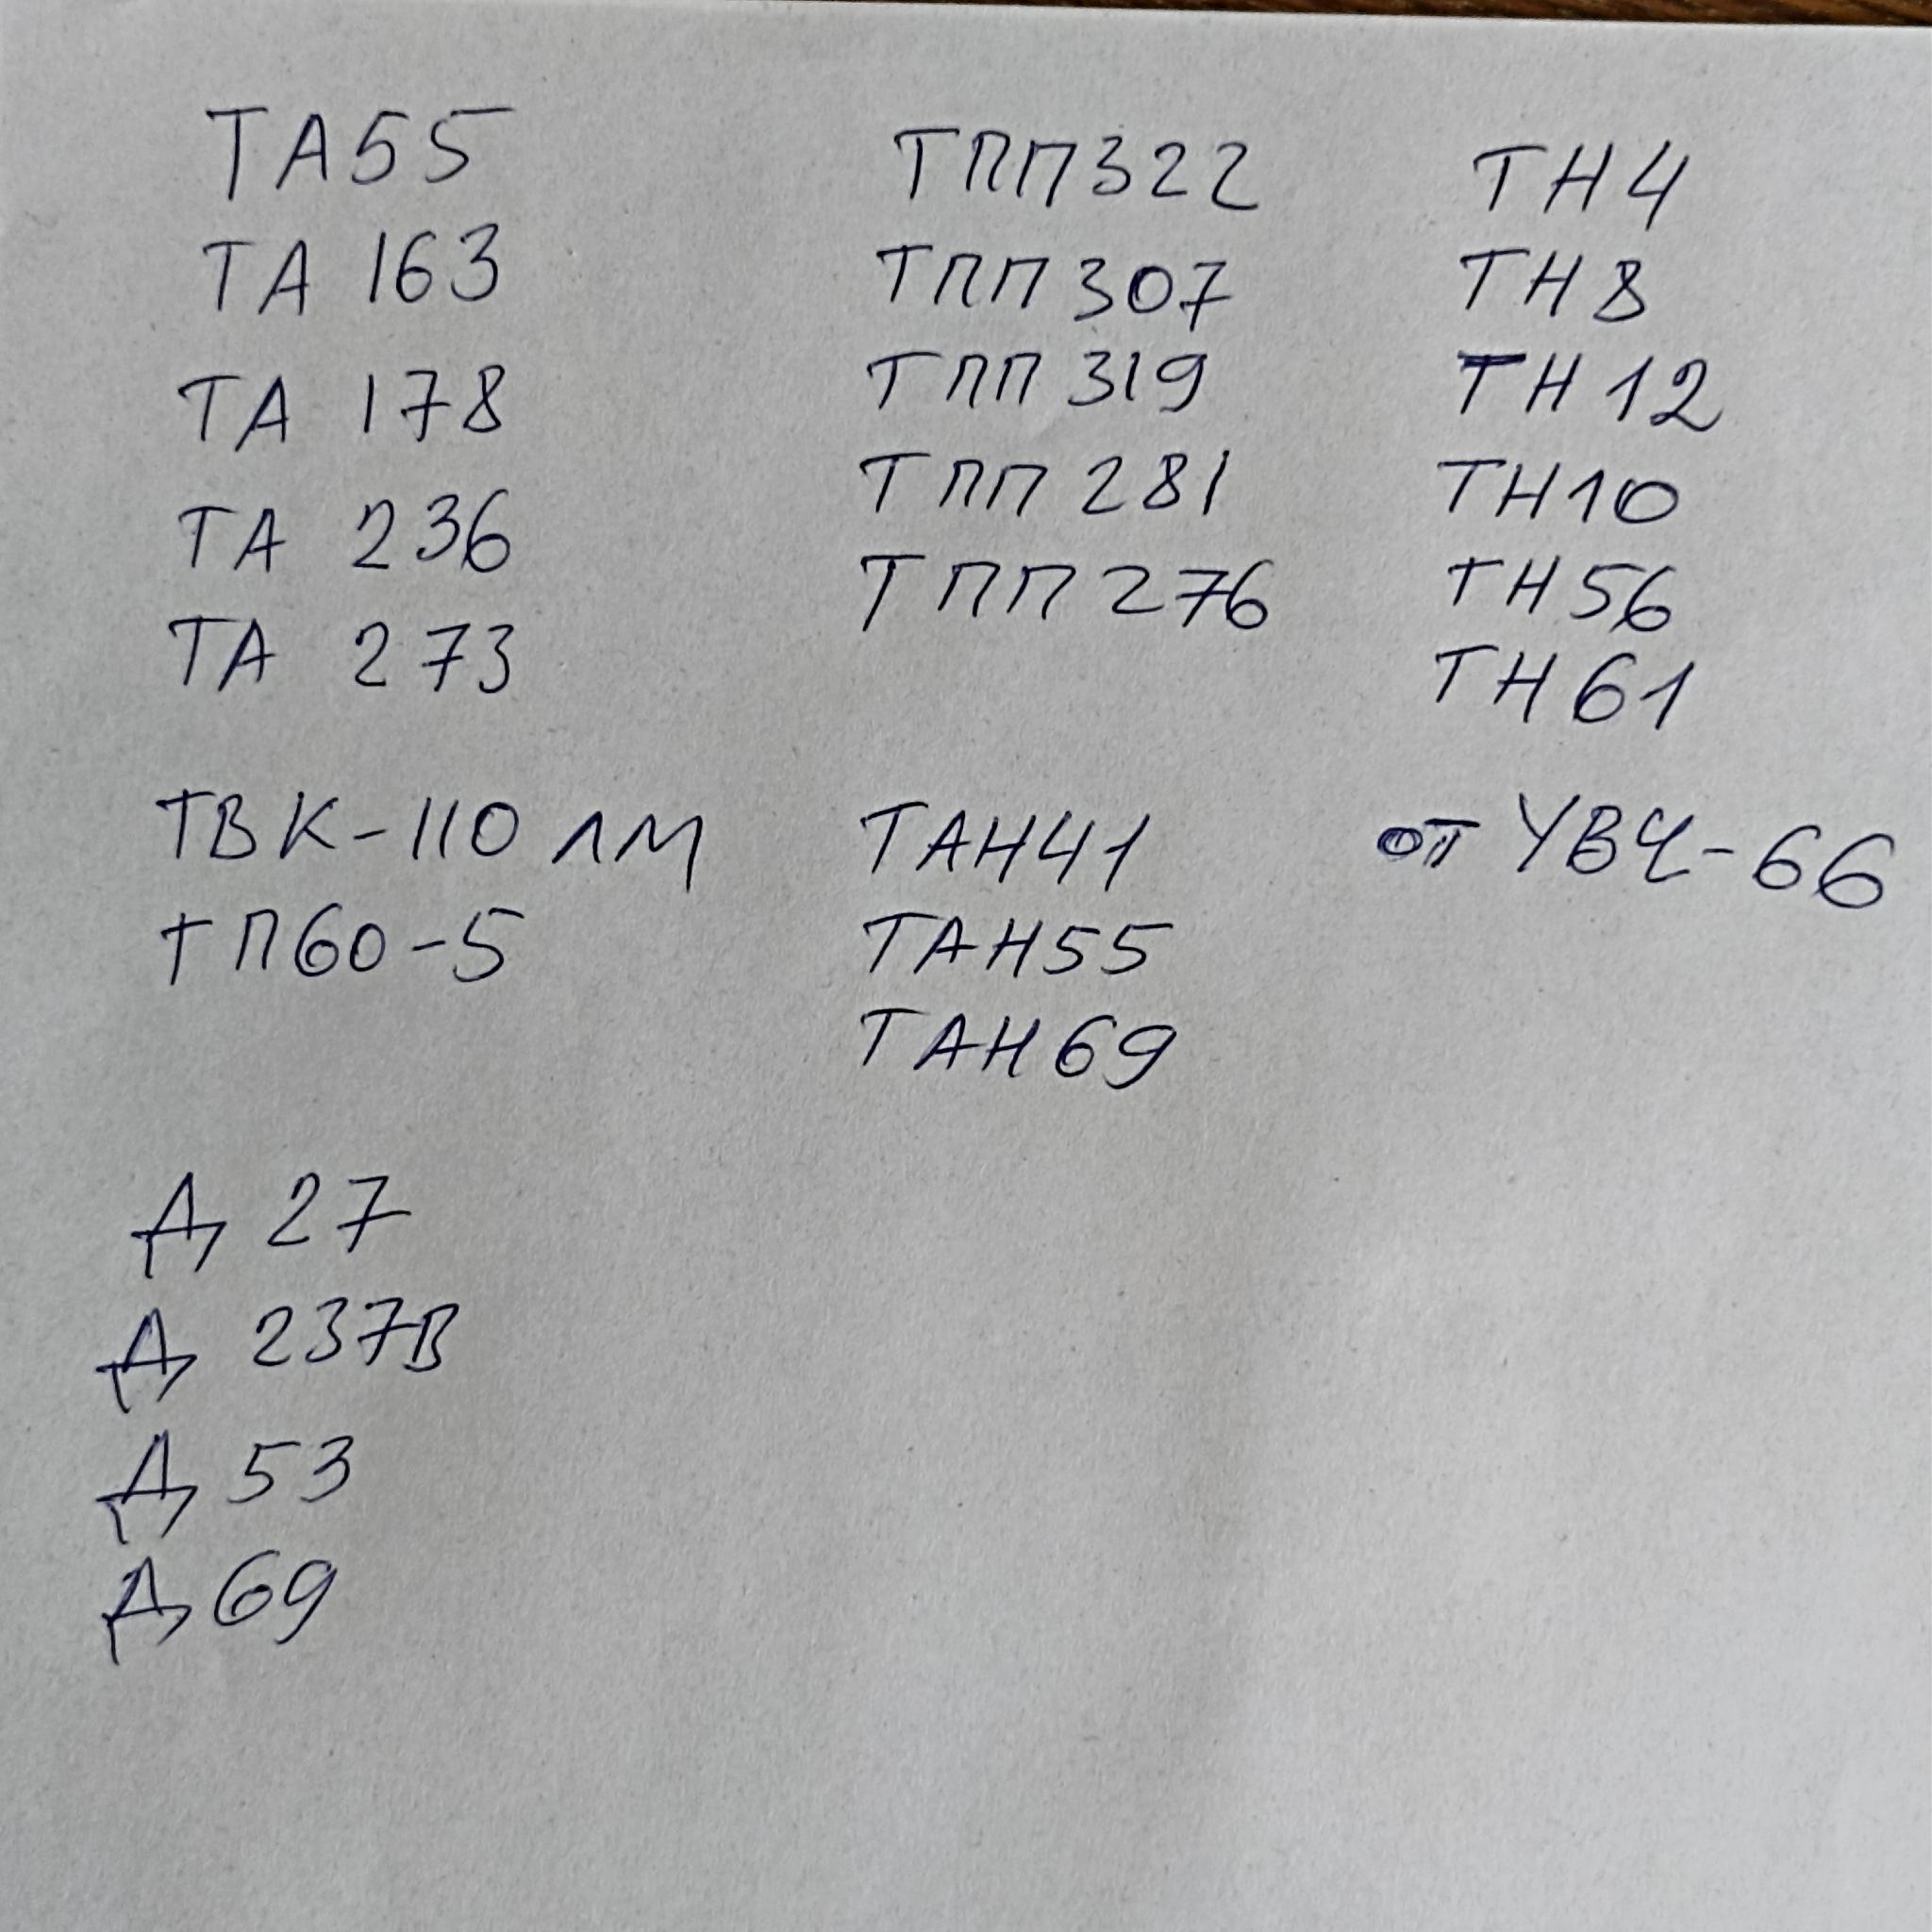 ТА55
ТА 163
ТА 178
ТА 236
ТА 273
ТПП322
ТПП 307
ТПП 319
ТПП 281
ТПП 276
ТН4
ТН8
ТН12
ТН10
ТН56
ТН61
ТВК-110 ЛМ
ТП60-5
ТАН41
ТАН55
ТАН69
от УВЧ-66
Д 27
Д 237В
Д 53
Д 69